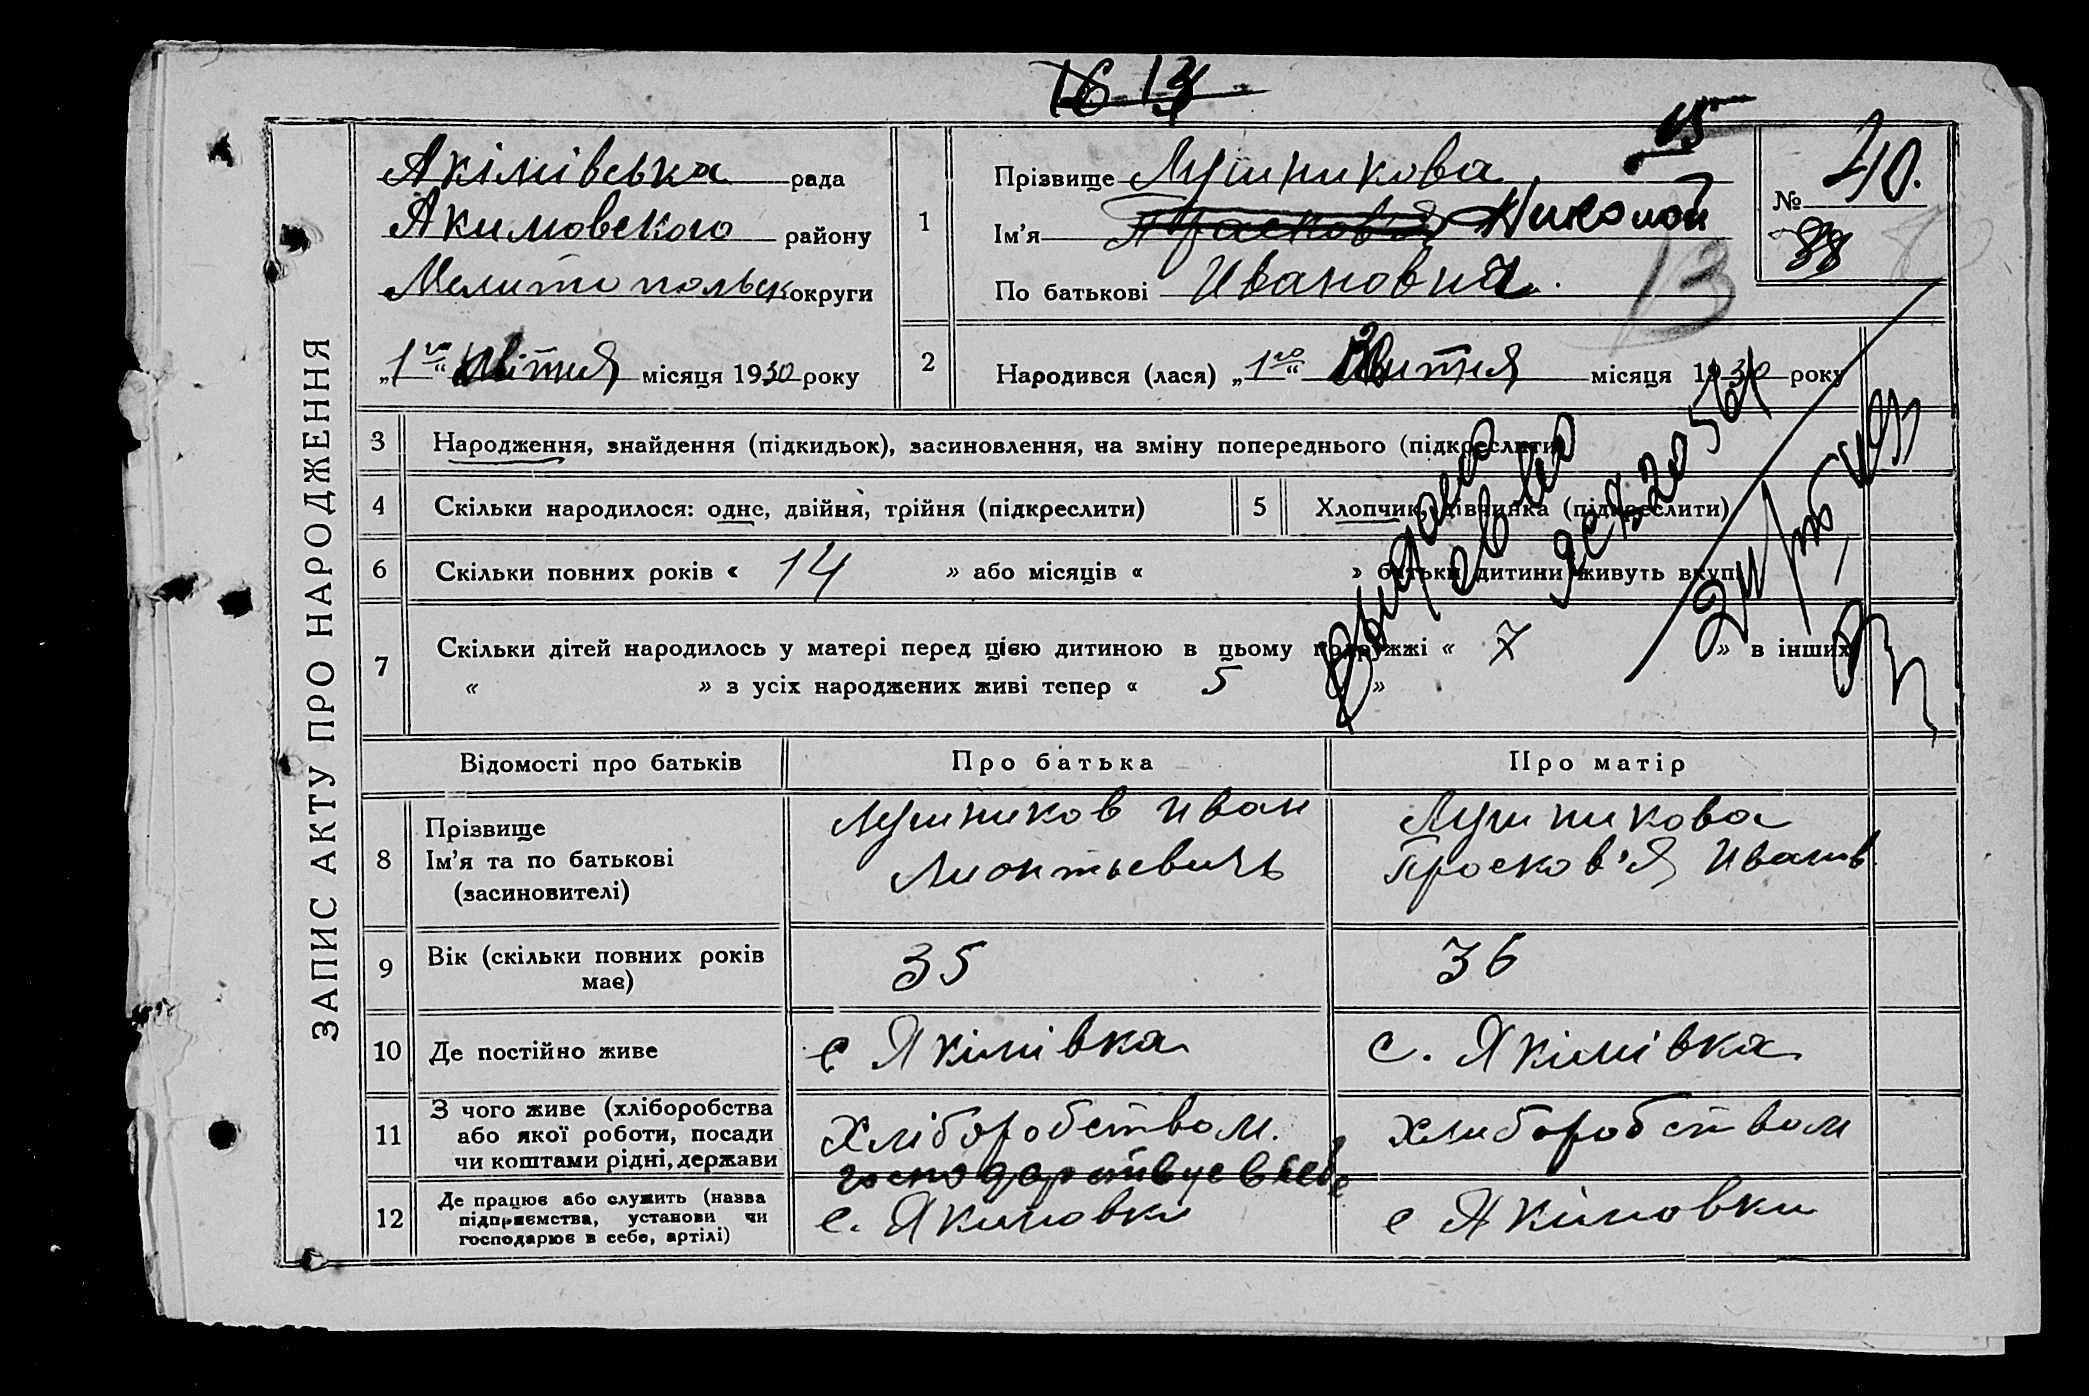 16 13
15
ЗАПИС АКТУ ПРО НАРОДЖЕННЯ
Акімівська рада
Акимовского району
Мелитопольск округи
„1го“ квітня місяця 1930 року
1
Прізвище Лушникова
Ім'я Прасковія Николай
По батькові Ивановна.
№ 40.
38
13
2
Народився (лася) „1го“ Квитня місяця 1930 року
3 Народження, знайдення (підкидьок), засиновлення, на зміну попереднього (підкреслити)
4 Скільки народилося: одне, двійня, трійня (підкреслити)
5 Хлопчик, дівчинка (підкреслити)
6 Скільки повних років « 14 » або місяців « » батьки дитини живуть вкупі
7 Скільки дітей народилось у матері перед цією дитиною в цьому подружжі « 7 » в інших
« » з усіх народжених живі тепер « 5 »
Відомості про батьків
Про батька
Про матір
8 Прізвище
Ім'я та по батькові
(засиновителі)
Лушников Иван
Лионтьевичь
Лушникова
Просков'я Иванів
9 Вік (скільки повних років
має)
35
36
10 Де постійно живе
с Якімівка
с. Якімівка
11 З чого живе (хліборобства
або якої роботи, посади
чи коштами рідні, держави
Хліборобством.
хлиборобством
12 Де працює або служить (назва
підприємства, установи чи
господарює в себе, артілі)
господарствує в себе
с. Якимовки
с Якімовки